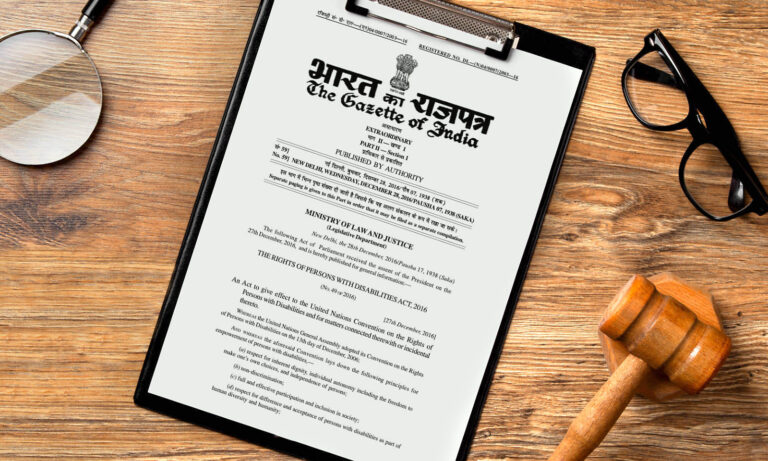 रजिस्ट्री सं. डी. एल.—(एन)04/0007/2003—16
REGISTERED NO. DL—(N)04/0007/2003—16
भारत का राजपत्र
The Gazette of India
असाधारण
EXTRAORDINARY
भाग II — खण्ड 1
PART II — Section 1
प्राधिकार से प्रकाशित
PUBLISHED BY AUTHORITY
सं० 59]
नई दिल्ली, बुधवार, दिसम्बर 28, 2016/पौष 07, 1938 (शक)
No. 59]
NEW DELHI, WEDNESDAY, DECEMBER 28, 2016/PAUSHA 07, 1938 (SAKA)
इस भाग में भिन्न पृष्ठ संख्या दी जाती है जिससे कि यह अलग संकलन के रूप में रखा जा सके।
Separate paging is given to this Part in order that it may be filed as a separate compilation.
MINISTRY OF LAW AND JUSTICE
(Legislative Department)
New Delhi, the 28th December, 2016/Pausha 17, 1938 (Saka)
The following Act of Parliament received the assent of the President on the
27th December, 2016, and is hereby published for general information:—
THE RIGHTS OF PERSONS WITH DISABILITIES ACT, 2016
(No. 49 of 2016)
[27th December, 2016]
An Act to give effect to the United Nations Convention on the Rights of
Persons with Disabilities and for matters connected therewith or incidental
thereto.
WHEREAS the United Nations General Assembly adopted its Convention on the Rights
of Persons with Disabilities on the 13th day of December, 2006;
AND WHEREAS the aforesaid Convention lays down the following principles for
empowerment of persons with disabilities,—
(a) respect for inherent dignity, individual autonomy including the freedom to
make one's own choices, and independence of persons;
(b) non-discrimination;
(c) full and effective participation and inclusion in society;
(d) respect for difference and acceptance of persons with disabilities as part of
human diversity and humanity;